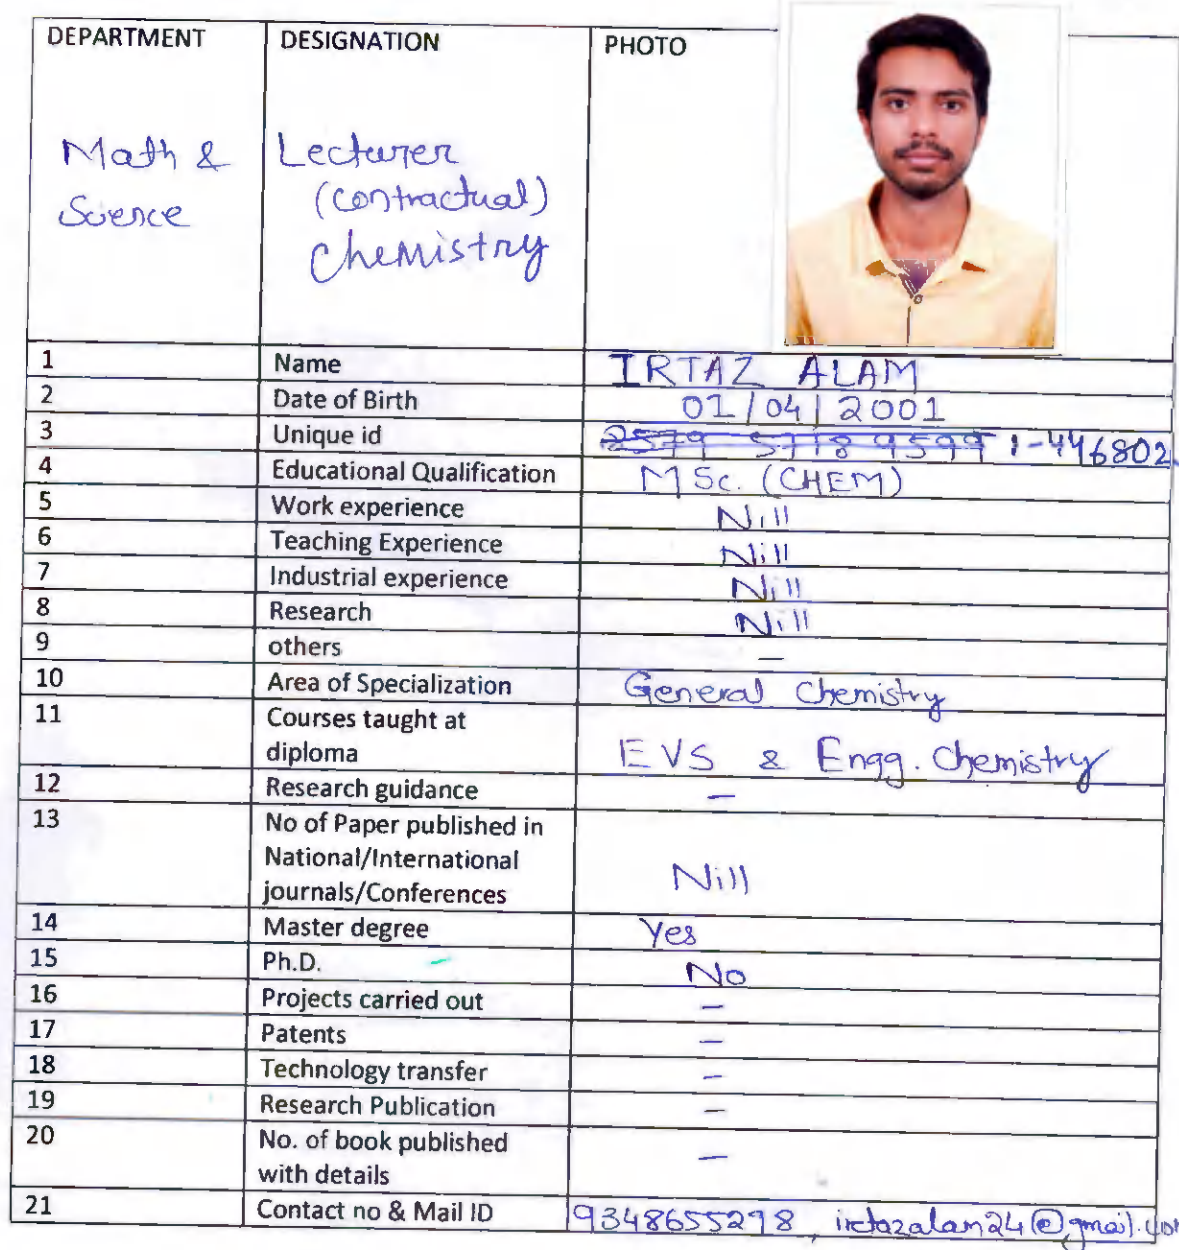 DEPARTMENT DESIGNATION PHOTO
Math & Lecturer
Science (contractual)
Chemistry
1 Name IRTAZ ALAM
2 Date of Birth 01/04/2001
3 Unique id 1-446802
4 Educational Qualification MSc. (CHEM)
5 Work experience Nill
6 Teaching Experience Nill
7 Industrial experience Nill
8 Research Nill
9 others –
10 Area of Specialization General Chemistry
11 Courses taught at
diploma EVS & Engg. Chemistry
12 Research guidance –
13 No of Paper published in
National/International
journals/Conferences Nill
14 Master degree Yes
15 Ph.D. – No
16 Projects carried out –
17 Patents –
18 Technology transfer –
19 Research Publication –
20 No. of book published
with details –
21 Contact no & Mail ID 9348655298, irtazalam24@gmail.com